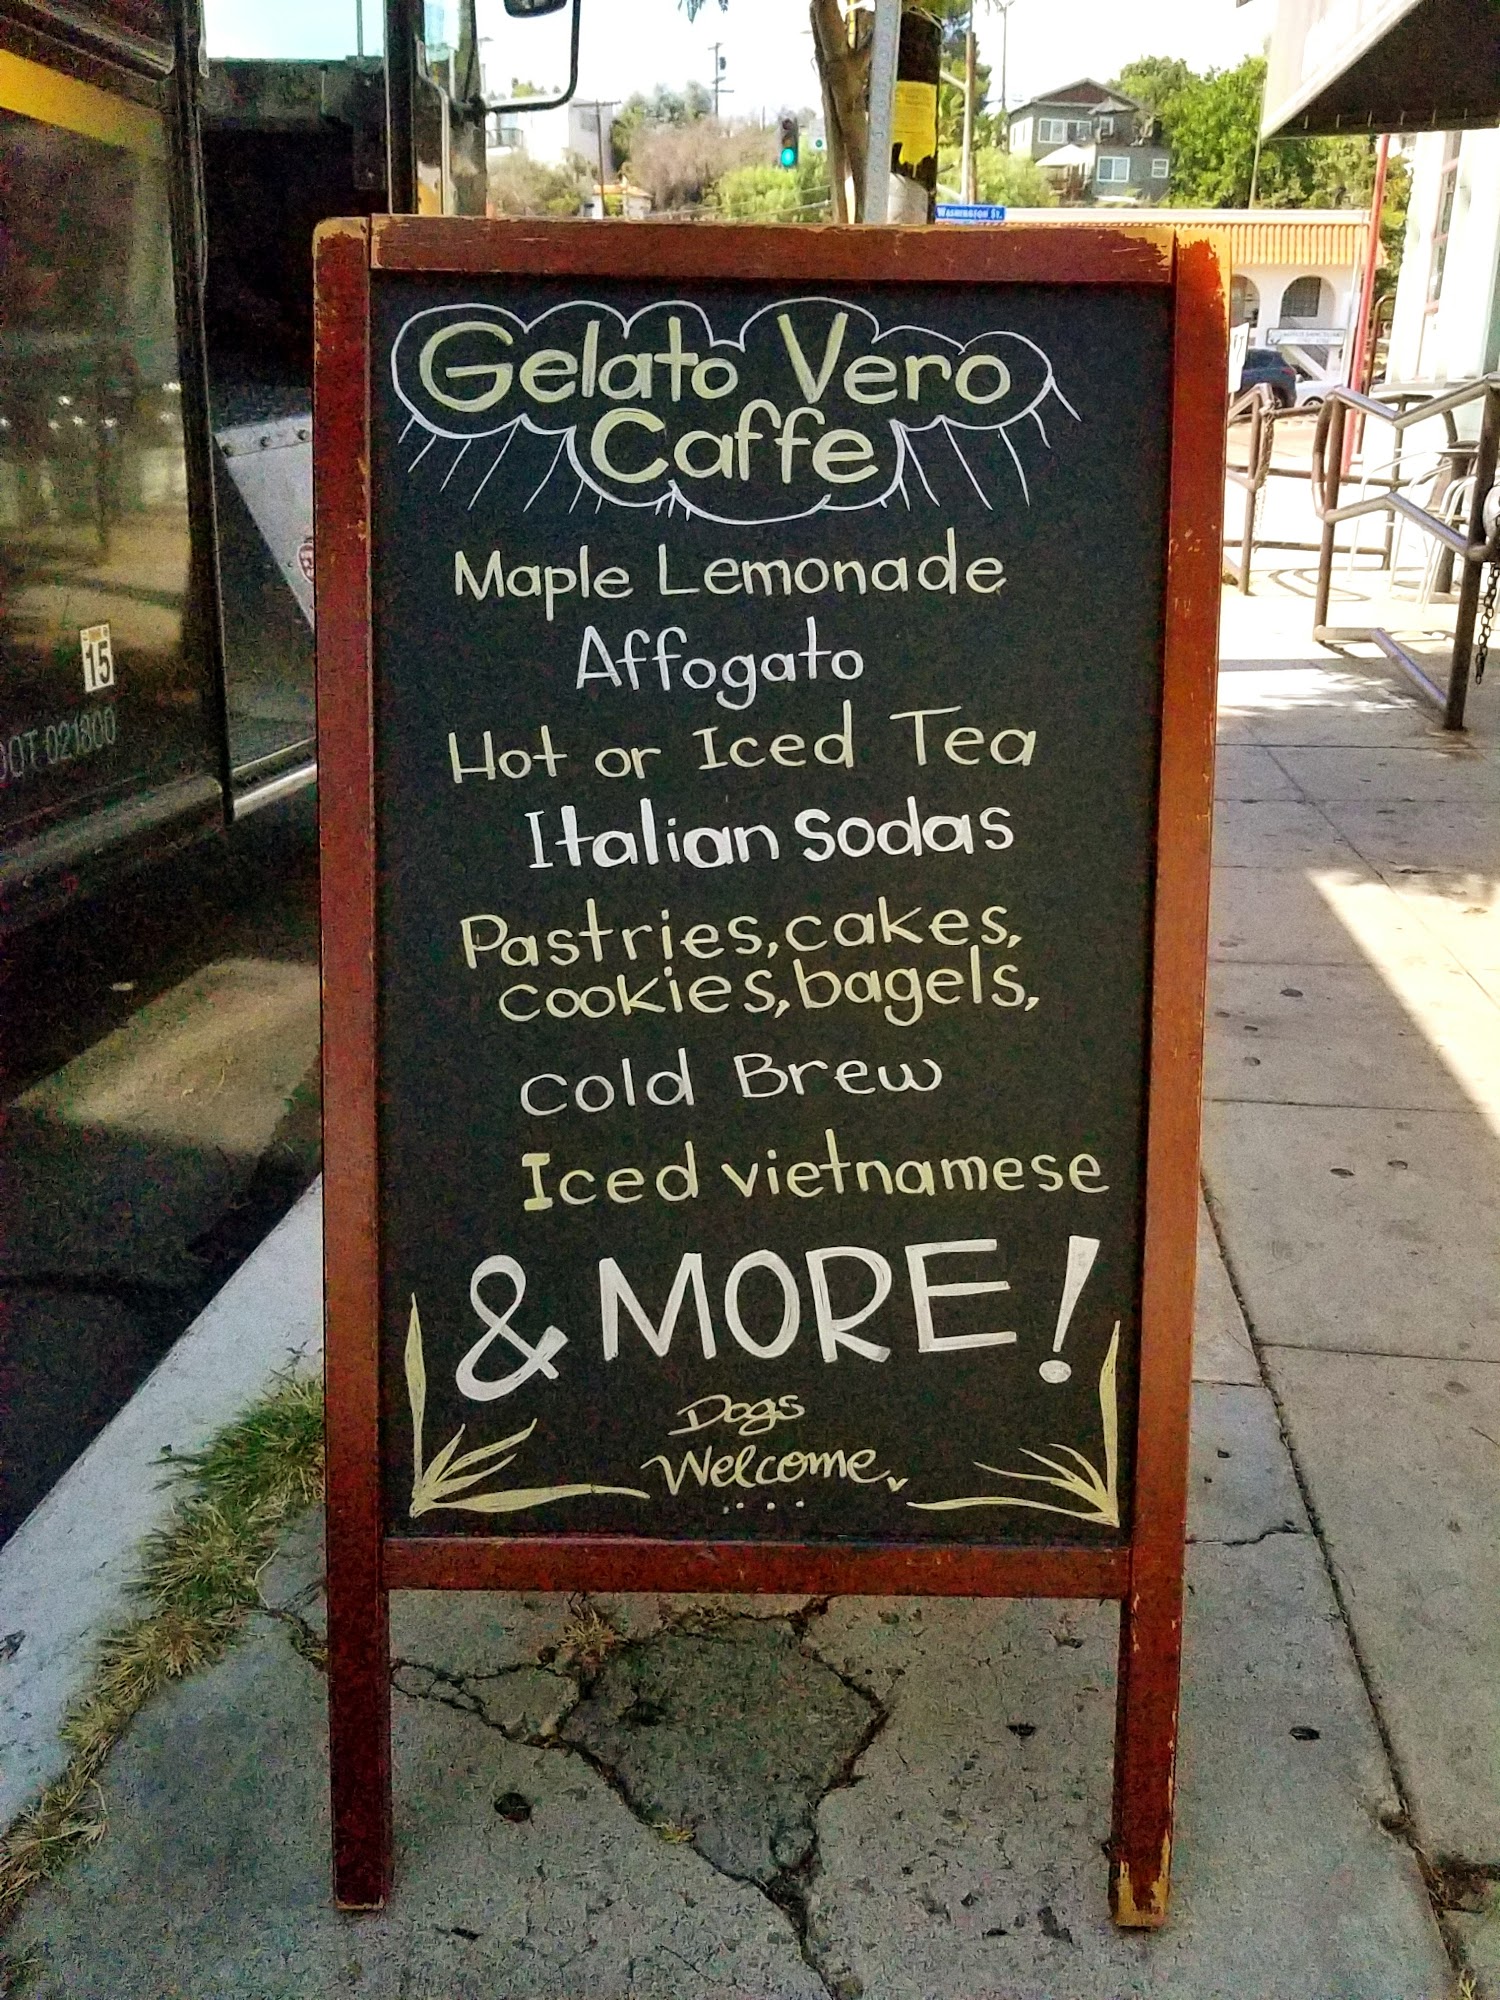 WASHINGTON ST.
Gelato Vero
Caffe
Maple Lemonade
Affogato
Hot or Iced Tea
Italian Sodas
Pastries, cakes,
cookies, bagels,
Cold Brew
Iced vietnamese
& MORE!
Dogs
Welcome
15
DOT 021800